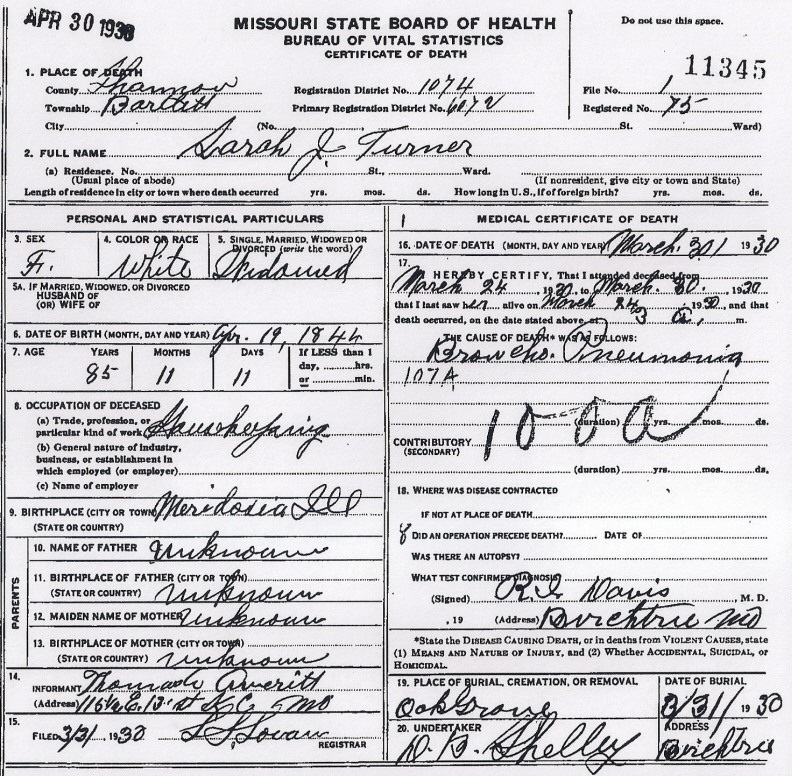 APR 30 1930
MISSOURI STATE BOARD OF HEALTH
BUREAU OF VITAL STATISTICS
CERTIFICATE OF DEATH
Do not use this space.
11345
1. PLACE OF DEATH
County Shannon Registration District No. 1074 File No.
Township Bartlett Primary Registration District No. 6072 Registered No. 75
City (No. St. Ward)
2. FULL NAME Sarah J Turner
(a) Residence. No. St., Ward.
(Usual place of abode) (If nonresident, give city or town and State)
Length of residence in city or town where death occurred yrs. mos. ds. How long in U.S., if of foreign birth? yrs. mos. ds.
PERSONAL AND STATISTICAL PARTICULARS
3. SEX 4. COLOR OR RACE 5. SINGLE, MARRIED, WIDOWED OR
DIVORCED (write the word)
F. White Widowed
5A. IF MARRIED, WIDOWED, OR DIVORCED
HUSBAND OF
(OR) WIFE OF
6. DATE OF BIRTH (MONTH, DAY AND YEAR) Apr. 19, 1844
7. AGE YEARS MONTHS DAYS If LESS than 1
day, hrs.
or min.
85 11 11
8. OCCUPATION OF DECEASED
(a) Trade, profession, or
particular kind of work Housekeeping
(b) General nature of industry,
business, or establishment in
which employed (or employer)
(c) Name of employer
9. BIRTHPLACE (CITY OR TOWN) Meridosia Ill
(STATE OR COUNTRY)
PARENTS
10. NAME OF FATHER Unknown
11. BIRTHPLACE OF FATHER (CITY OR TOWN)
(STATE OR COUNTRY) Unknown
12. MAIDEN NAME OF MOTHER Unknown
13. BIRTHPLACE OF MOTHER (CITY OR TOWN)
(STATE OR COUNTRY) Unknown
14.
INFORMANT Thomas Averitt
(Address) E. 13 st K.C. Mo
15.
FILED 3/31, 1930
REGISTRAR
MEDICAL CERTIFICATE OF DEATH
16. DATE OF DEATH (MONTH, DAY AND YEAR) March. 30 1930
17.
I HEREBY CERTIFY, That I attended deceased from
March 24, 1930, to March. 30, 1930
that I last saw her alive on March 24, 1930, and that
death occurred, on the date stated above, at 3 a. m.
THE CAUSE OF DEATH* WAS AS FOLLOWS:
Broncho. Pneumonia
107A
(duration) yrs. mos. ds.
CONTRIBUTORY
(SECONDARY)
(duration) yrs. mos. ds.
18. WHERE WAS DISEASE CONTRACTED
IF NOT AT PLACE OF DEATH
DID AN OPERATION PRECEDE DEATH? DATE OF
WAS THERE AN AUTOPSY?
WHAT TEST CONFIRMED DIAGNOSIS?
(Signed) Davis, M. D.
, 19 (Address) Birchtree Mo
*State the DISEASE CAUSING DEATH, or in deaths from VIOLENT CAUSES, state
(1) MEANS AND NATURE OF INJURY, and (2) Whether ACCIDENTAL, SUICIDAL, or
HOMICIDAL.
19. PLACE OF BURIAL, CREMATION, OR REMOVAL DATE OF BURIAL
Oak Grove 3/31/1930
20. UNDERTAKER ADDRESS
D. B. Shelley Birchtree